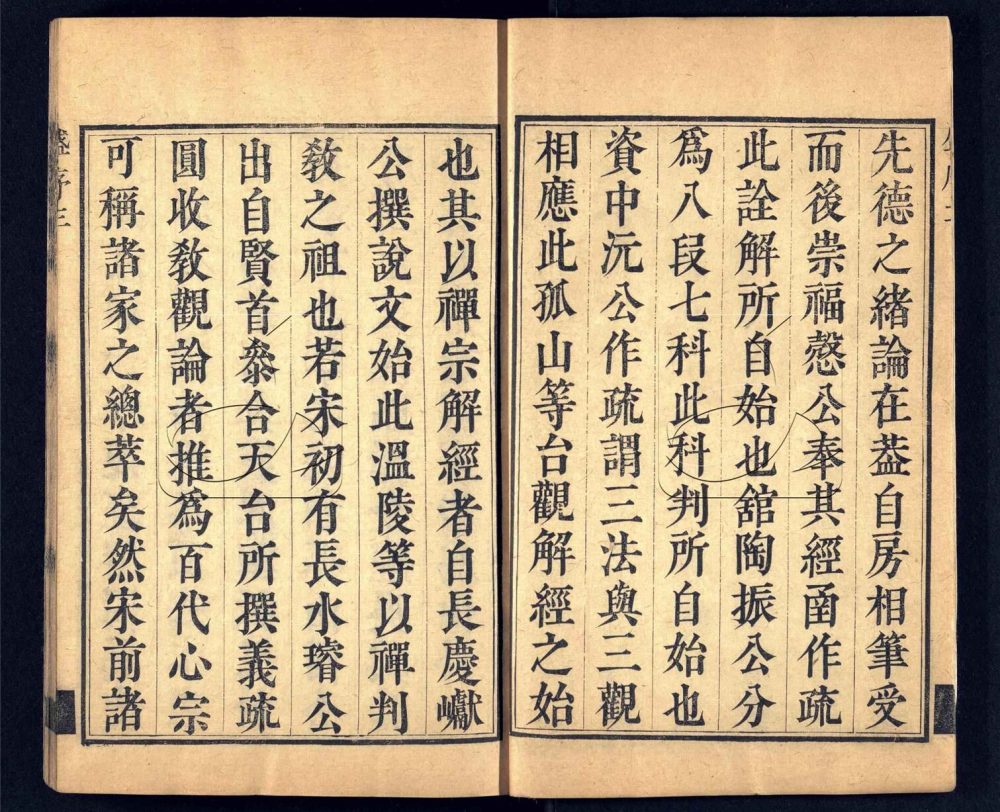 先德之緒論在葢自房相筆受
而後崇福慤公奉其經函作疏
此詮解所自始也舘陶振公分
爲八段七科此科判所自始也
資中沇公作疏謂三法與三觀
相應此孤山等台觀解經之始
也其以禪宗解經者自長慶巘
公撰說文始此溫陵等以禪判
敎之祖也若宋初有長水璿公
出自賢首叅合天台所撰義疏
圓收敎觀論者推爲百代心宗
可稱諸家之總萃矣然宋前諸
序三